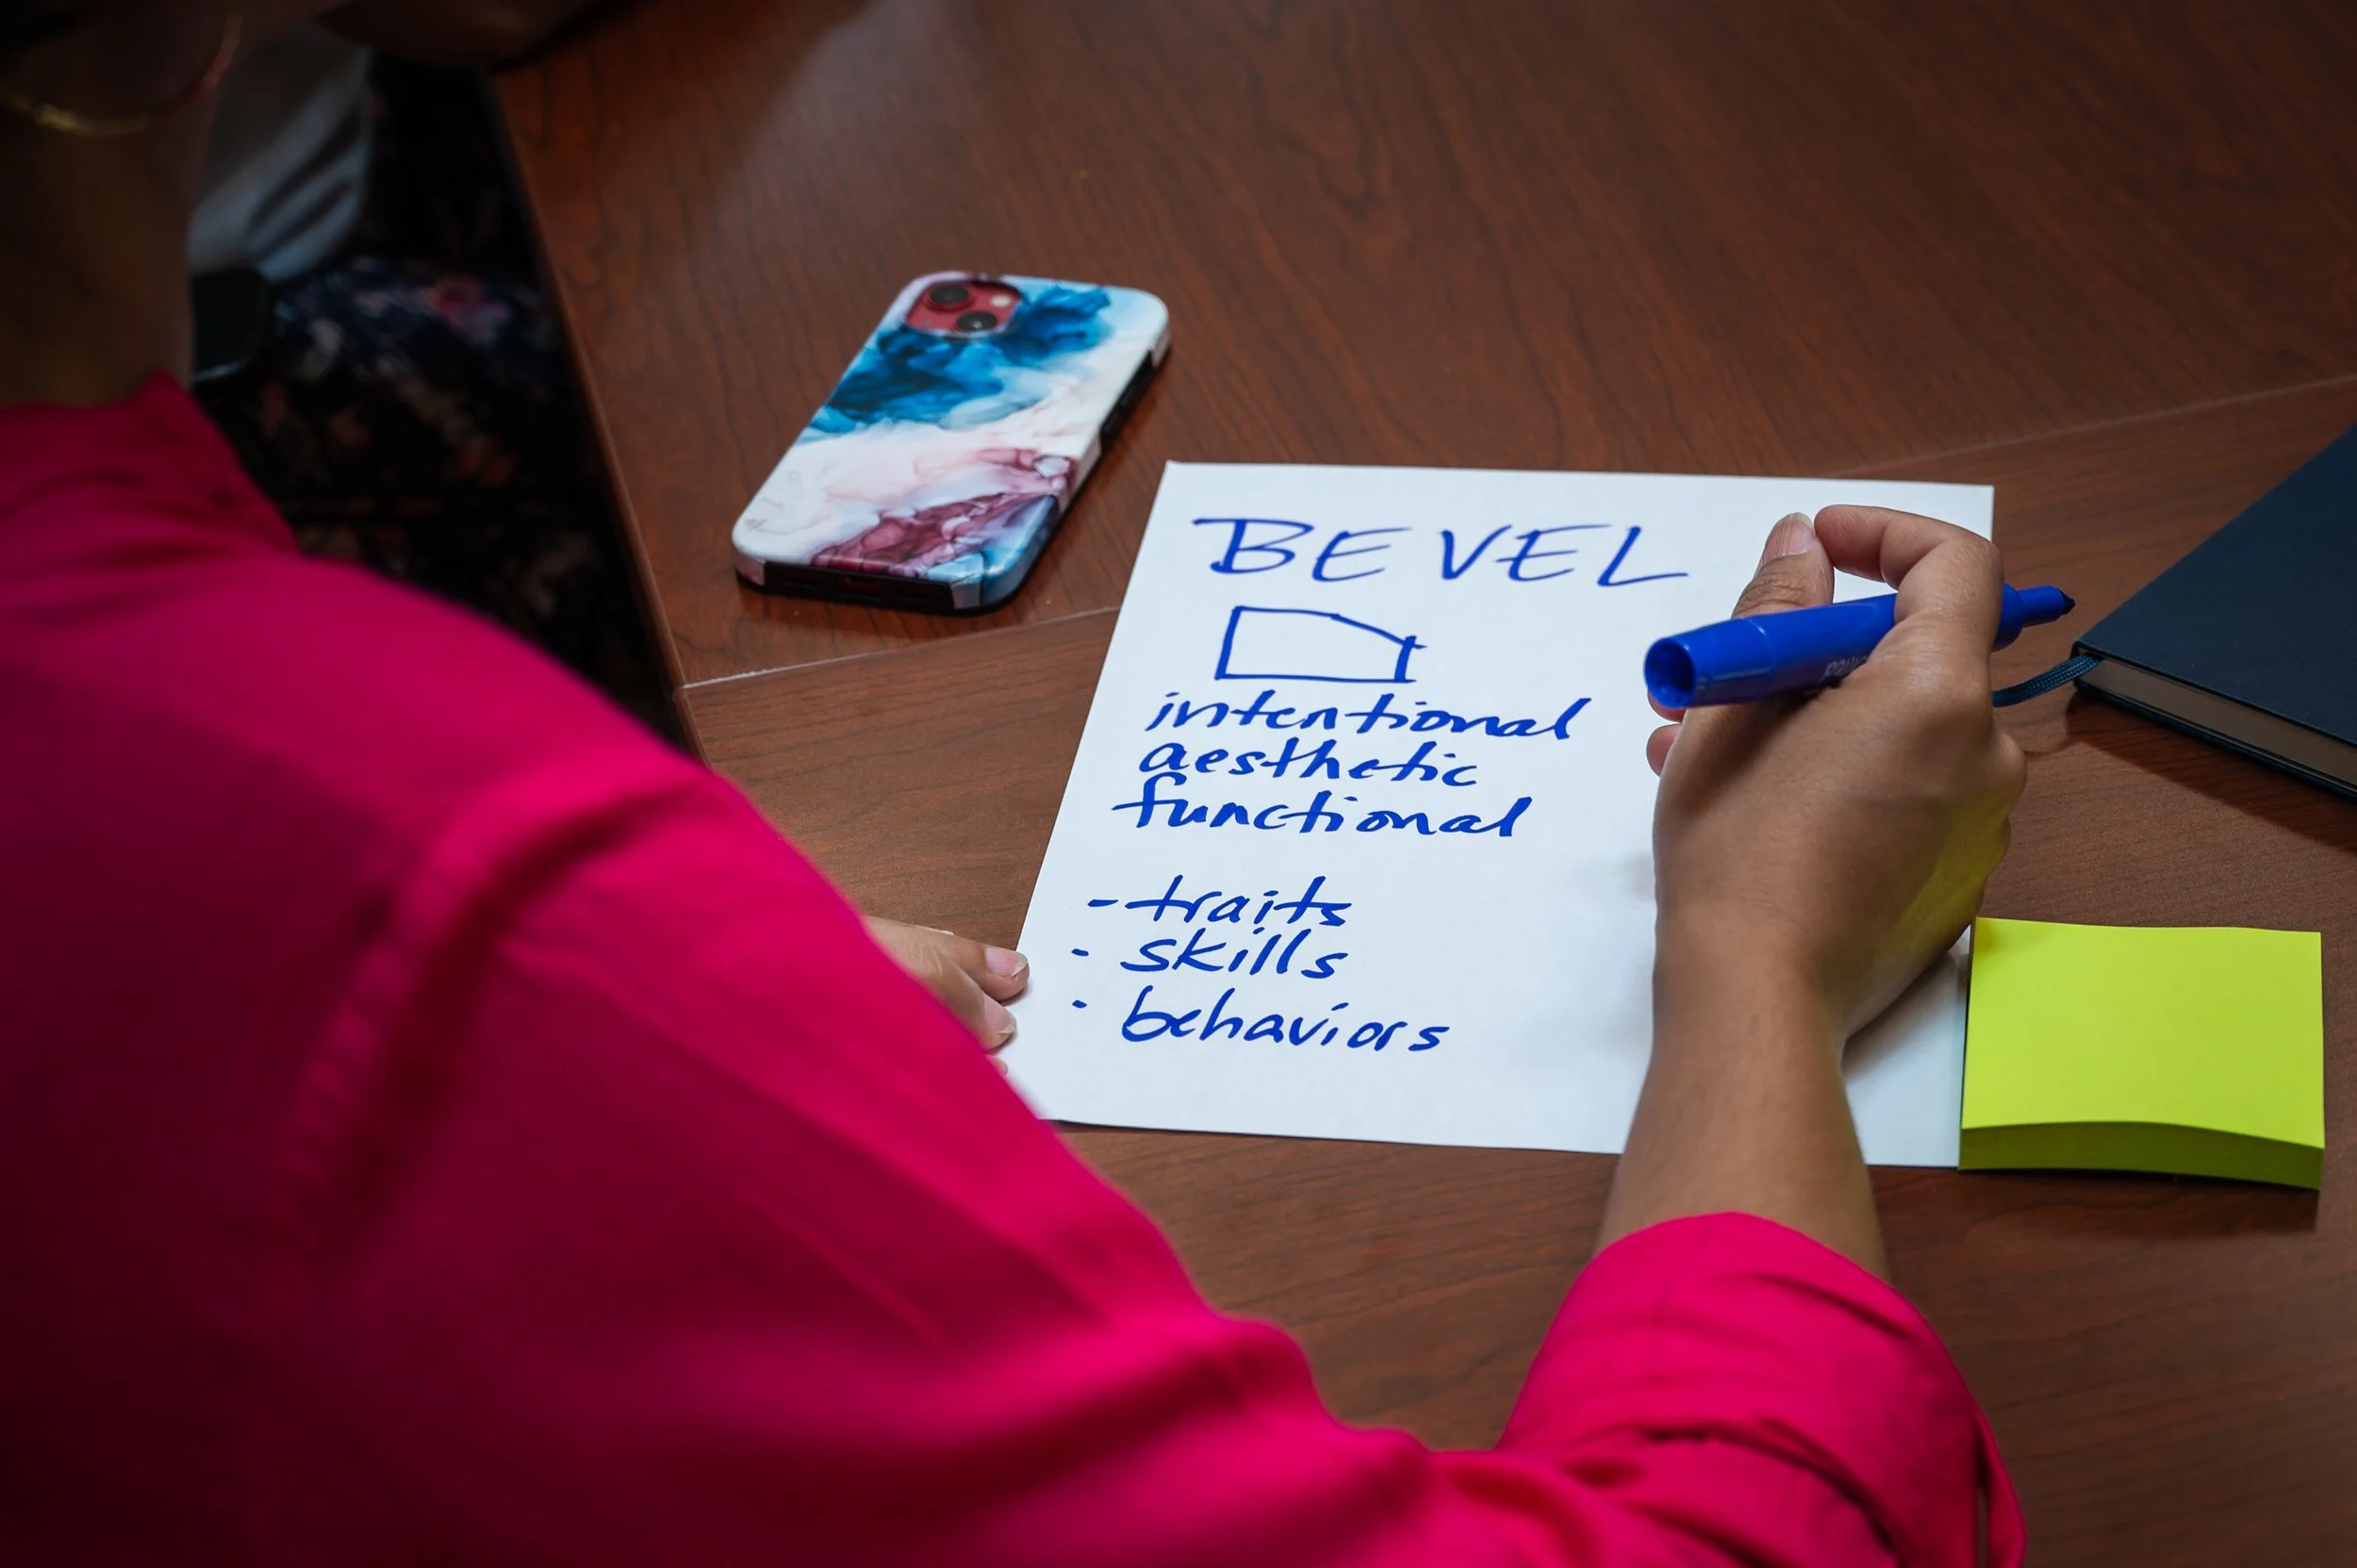 BEVEL
intentional
aesthetic
functional
- traits
- skills
- behaviors